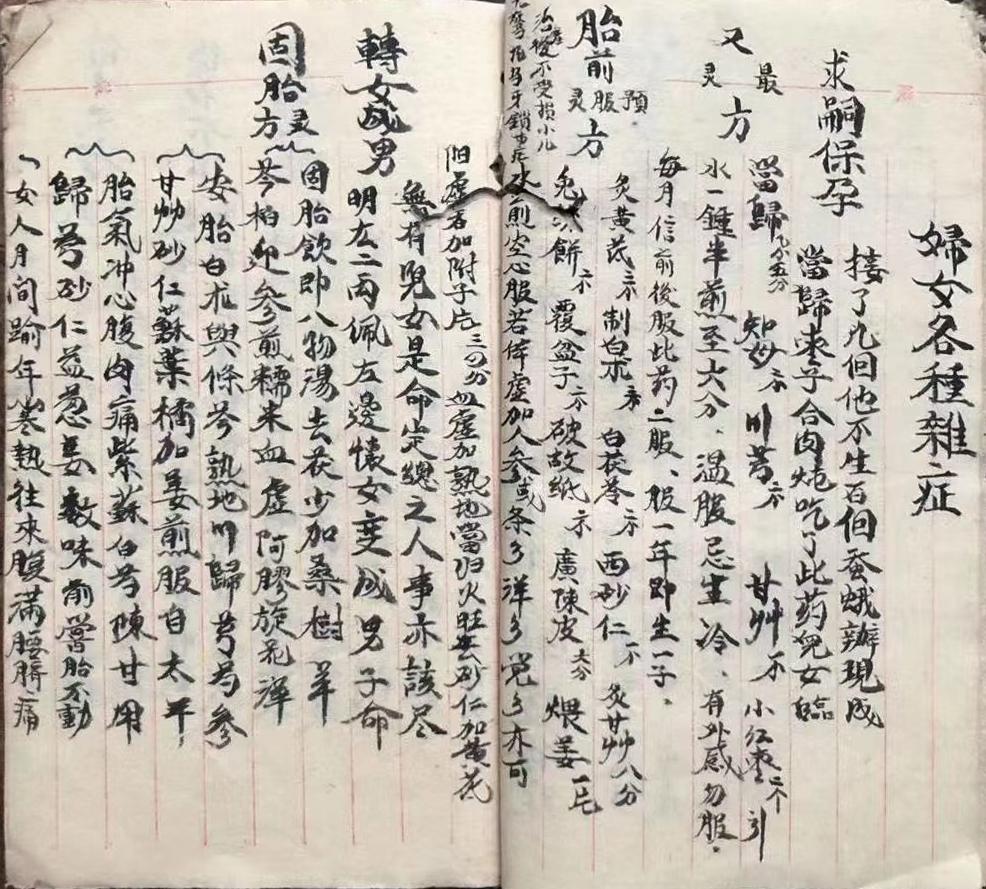 婦女各種雜症
求嗣保孕
接了几回他不生百個蚕蛾辦現成
當歸枣子合肉炖吃了此药兒女臨
又
最灵方
當歸 五分 知母 川芎 甘艸 小红枣 引
水一鍾半煎至六分、温服忌生冷、有外感勿服。
每月信前後服此药二服、服一年即生一子。
胎前
預服灵方
炙黄芪 制白朮 白茯苓 西砂仁 炙甘艸八分
兔 餅 覆盆子 破故纸 廣陳皮 六分 煨姜
煎空心服若体虚加人参或条参洋参党参亦可
受損小儿
阳虚者加附子片三四分血虚加熟地當归火旺去砂仁加黄芩
轉女成男
無有兒女是命定總之人事亦該尽
明左二両佩左邊懷女变成男子命
固胎灵方
固胎飲即八物湯去茯少加桑樹羊
芩柏迎参煎糯米血虚阿膠旋花洋
安胎白朮與條芩熟地川歸芎芍参
甘艸砂仁蘇葉橘加姜煎服自太平
胎氣冲心腹肉痛紫蘇白芍陳甘用
歸芎砂仁益葱姜数味煎嘗胎不動
女人月间踰年寒熱往來腹滿腰臍痛